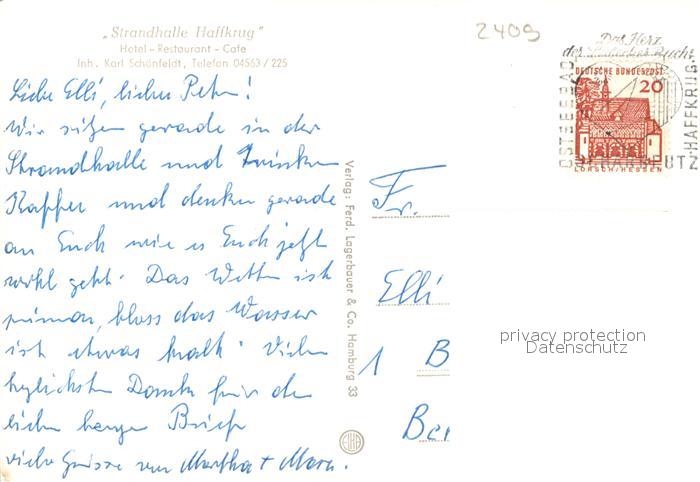 „Strandhalle Haffkrug"
Hotel - Restaurant - Cafe
Inh. Karl Schönfeldt, Telefon 04563 / 225
2409
Liebe Elli, lieber Peter!
Wir sitzen gerade in der
Strandhalle und trinken
Kaffee und denken gerade
an Euch wie es Euch jetzt
wohl geht. Das Wetter ist
prima, bloss das Wasser
ist etwas kalt. Vielen
herzlichsten Dank für den
lieben langen Brief
viele Grüsse von Martha +
Verlag: Ferd. Lagerbauer & Co. Hamburg 33
Fr.
Elli
1 B
Ber
Das Herz
der Lübecker Bucht
OSTSEEBAD
HAFFKRUG-
DEUTSCHE BUNDESPOST
20
LORSCH/HESSEN
privacy protection
Datenschutz